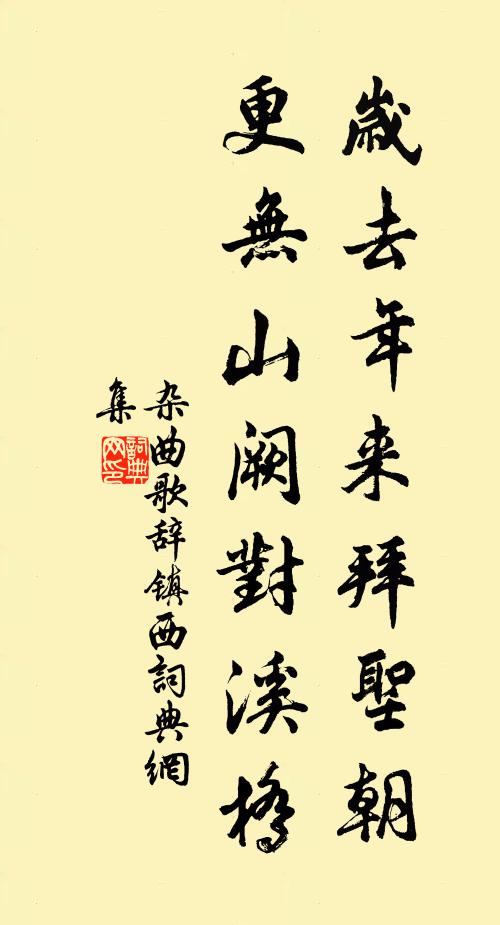 歲去年来拜聖朝
更無山闕對溪橋
杂曲歌辞镇西詞典網
集
詞典
网印